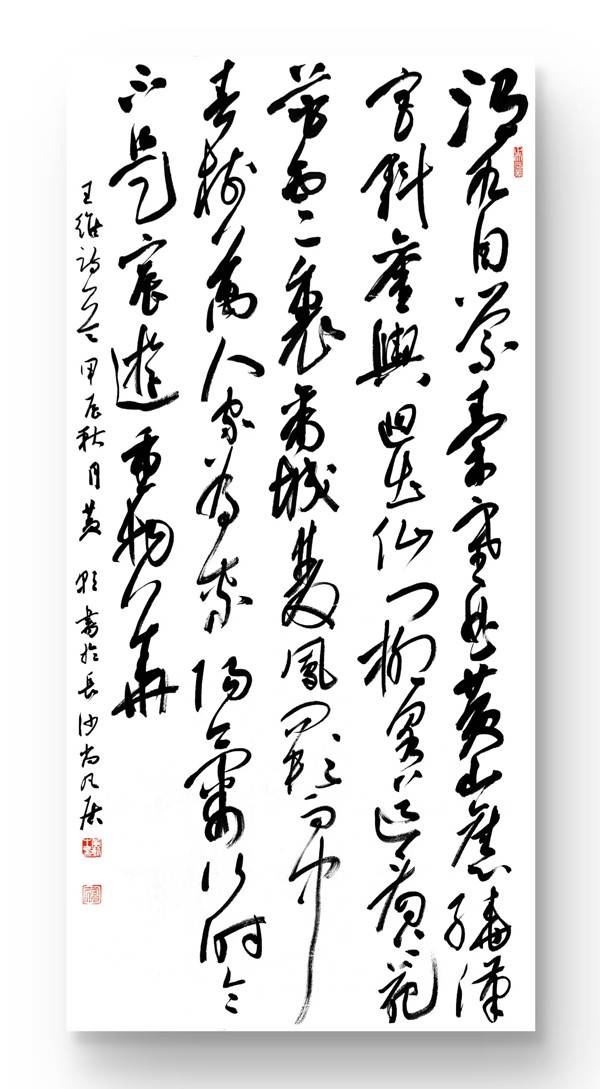 渭水自縈秦塞曲黄山舊繞漢
宫斜鑾輿迥出仙门柳閣道迴看上苑
花雲裏帝城雙鳳闕雨中
春樹萬人家為乘陽氣行時令
不是宸遊重物華
王維詩一首甲辰秋月黄書於長沙尚凡居